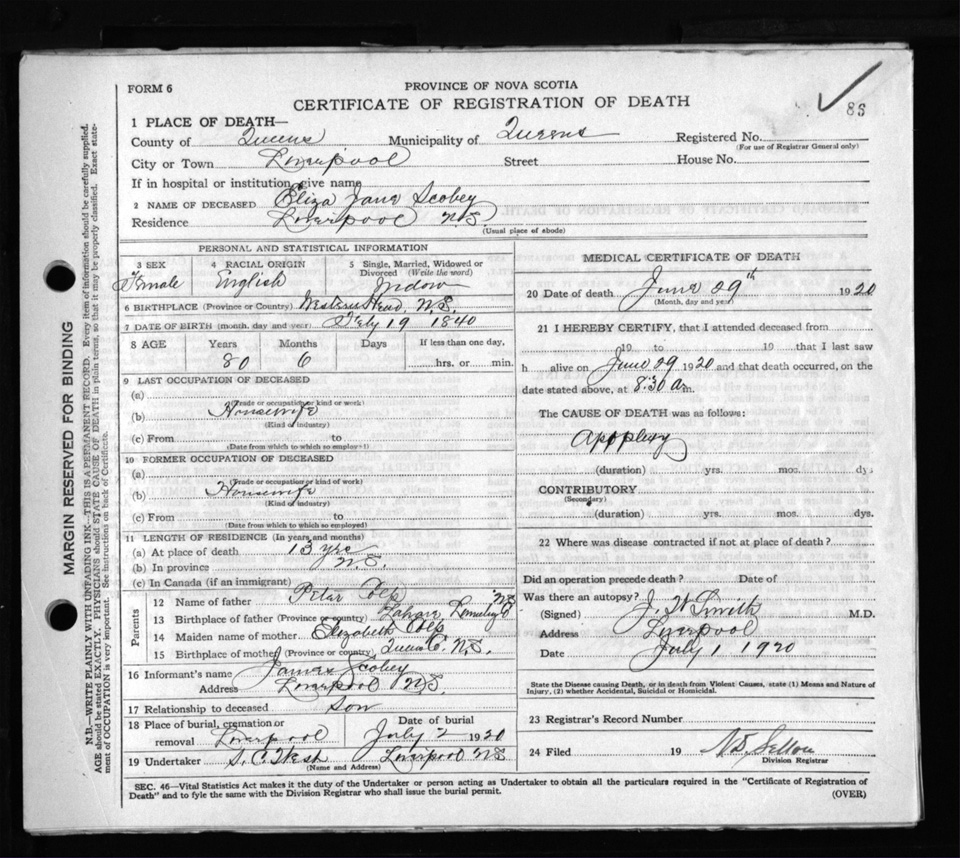 FORM 6
PROVINCE OF NOVA SCOTIA
CERTIFICATE OF REGISTRATION OF DEATH
86
1 PLACE OF DEATH—
County of Queens Municipality of Queens Registered No.
(For use of Registrar General only)
City or Town Liverpool Street House No.
If in hospital or institution give name
2 NAME OF DECEASED Eliza Jane Scobey
Residence Liverpool N.S.
(Usual place of abode)
PERSONAL AND STATISTICAL INFORMATION
3 SEX 4 RACIAL ORIGIN 5 Single, Married, Widowed or Divorced (Write the word)
Female English Widow
6 BIRTHPLACE (Province or Country) Western Head, N.S.
7 DATE OF BIRTH (month, day and year) 19 1840
8 AGE Years Months Days If less than one day,
80 6 hrs. or min.
9 LAST OCCUPATION OF DECEASED
(a)
(Trade or occupation or kind of work)
(b) Housewife
(Kind of industry)
(c) From to
(Date from which to which so employed)
10 FORMER OCCUPATION OF DECEASED
(a)
(Trade or occupation or kind of work)
(b) Housewife
(Kind of industry)
(c) From to
(Date from which to which so employed)
11 LENGTH OF RESIDENCE (In years and months)
(a) At place of death 13 yrs
(b) In province N.S.
(c) In Canada (if an immigrant)
Parents
12 Name of father Peter Colp
13 Birthplace of father (Province or country) N.S.
14 Maiden name of mother Elizabeth Colp
15 Birthplace of mother (Province or country) Queens C. N.S.
16 Informant's name James Scobey
Address Liverpool N.S.
17 Relationship to deceased Son
18 Place of burial, cremation or removal Liverpool Date of burial July 2 1920
19 Undertaker S. C. West Liverpool N.S.
(Name and Address)
MEDICAL CERTIFICATE OF DEATH
20 Date of death June 29th 1920
(Month, day and year)
21 I HEREBY CERTIFY, that I attended deceased from
19 to 19 that I last saw
h alive on June 29 1920 and that death occurred, on the
date stated above, at 8:30 a.m.
The CAUSE OF DEATH was as follows:
Appoplexy
(duration) yrs. mos. dys
CONTRIBUTORY
(Secondary)
(duration) yrs. mos. dys.
22 Where was disease contracted if not at place of death?
Did an operation precede death? Date of
Was there an autopsy?
(Signed) J. W Smith M.D.
Address Liverpool
Date July 1 1920
State the Disease causing Death, or in death from Violent Causes, state (1) Means and Nature of
Injury, (2) whether Accidental, Suicidal or Homicidal.
23 Registrar's Record Number
24 Filed 19
Division Registrar
SEC. 46—Vital Statistics Act makes it the duty of the Undertaker or person acting as Undertaker to obtain all the particulars required in the "Certificate of Registration of
Death" and to fyle the same with the Division Registrar who shall issue the burial permit.
(OVER)
MARGIN RESERVED FOR BINDING
N.B.—WRITE PLAINLY WITH UNFADING INK—THIS IS A PERMANENT RECORD. Every item of information should be carefully supplied.
AGE should be stated EXACTLY. PHYSICIANS should STATE CAUSE OF DEATH in plain terms, so that it may be properly classified. Exact state-
ment of OCCUPATION is very important. See instructions on back of Certificate.